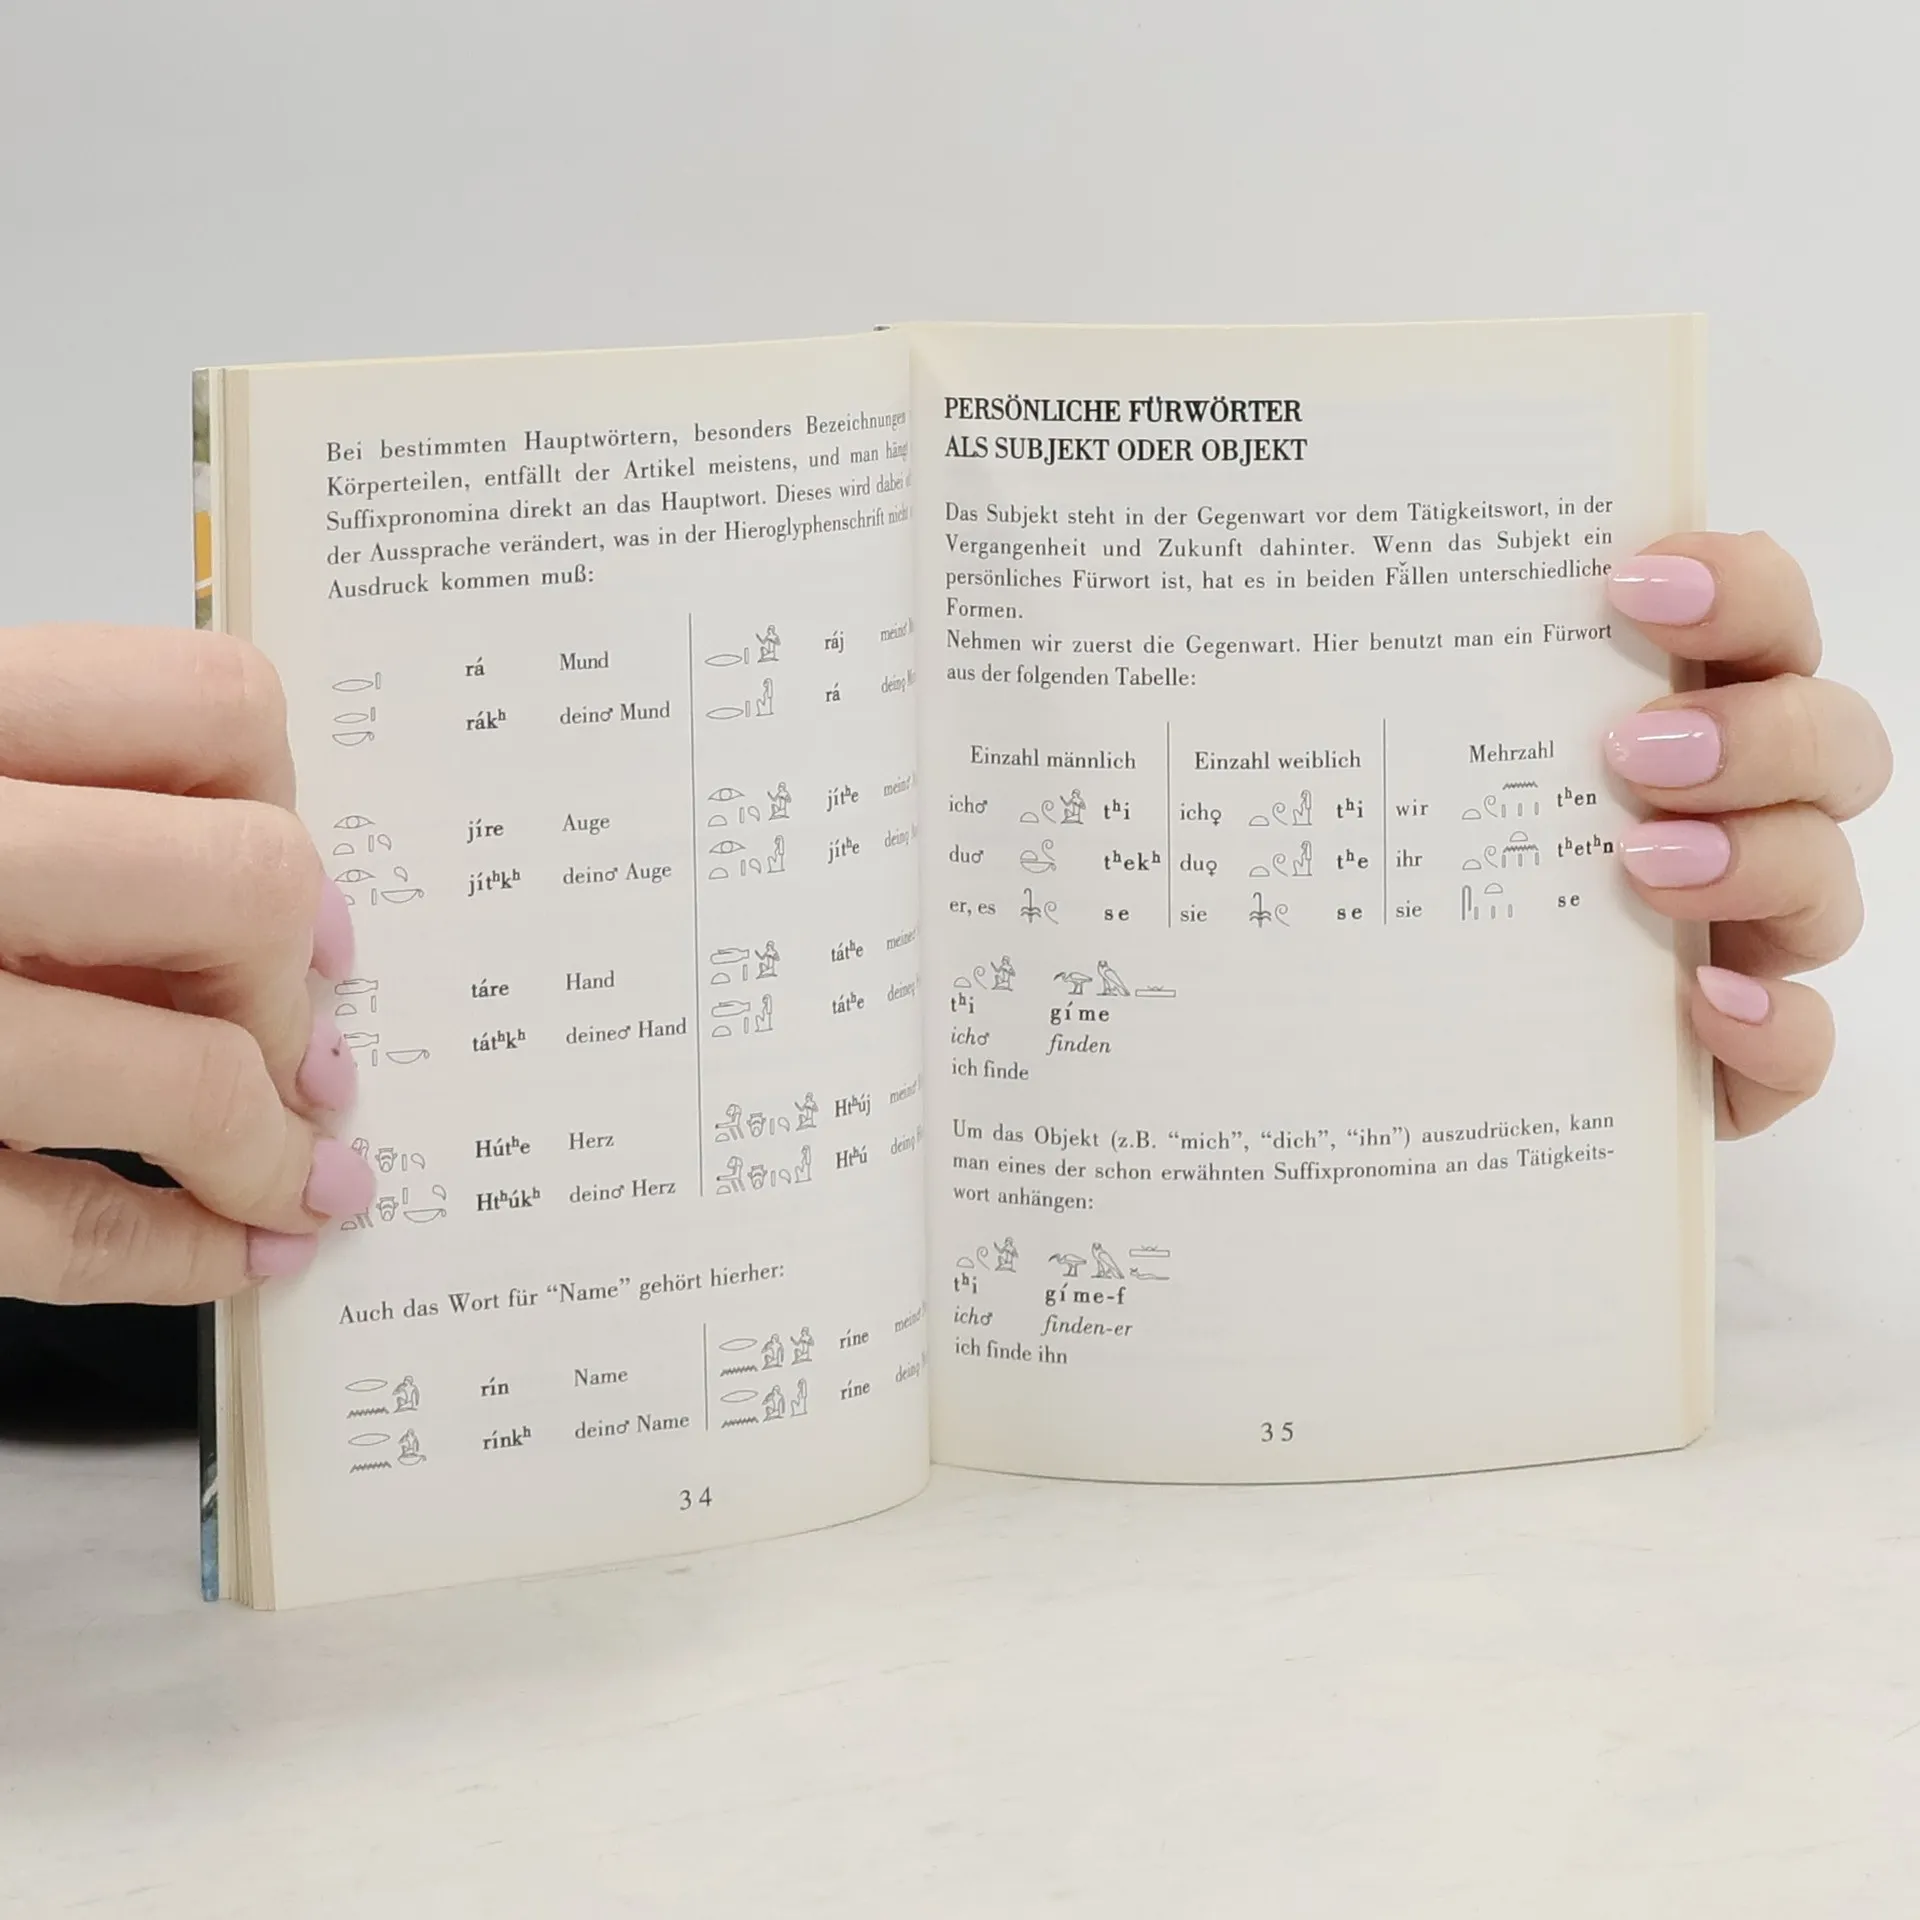 Bei bestimmten Hauptwörtern, besonders Bezeichnungen
Körperteilen, entfällt der Artikel meistens, und man hängt
Suffixpronomina direkt an das Hauptwort. Dieses wird dabei
der Aussprache verändert, was in der Hieroglyphenschrift nicht
Ausdruck kommen muß:
rá Mund ráj mein♂
rákʰ dein♂ Mund rá dein♀
jíre Auge jítʰe mein♂
jítʰkʰ dein♂ Auge jítʰe dein♀
táre Hand tátʰe meine♂
tátʰkʰ deine♂ Hand tátʰe deine♀
Hútʰe Herz Htʰúj mein♂
Htʰúkʰ dein♂ Herz Htʰú dein♀
Auch das Wort für “Name” gehört hierher:
rín Name ríne mein♂
rínkʰ dein♂ Name ríne dein♀
34
PERSÖNLICHE FÜRWÖRTER
ALS SUBJEKT ODER OBJEKT
Das Subjekt steht in der Gegenwart vor dem Tätigkeitswort, in der
Vergangenheit und Zukunft dahinter. Wenn das Subjekt ein
persönliches Fürwort ist, hat es in beiden Fällen unterschiedliche
Formen.
Nehmen wir zuerst die Gegenwart. Hier benutzt man ein Fürwort
aus der folgenden Tabelle:
Einzahl männlich Einzahl weiblich Mehrzahl
ich♂ tʰi ich♀ tʰi wir tʰen
du♂ tʰekʰ du♀ tʰe ihr tʰetʰn
er, es se sie se sie se
tʰi gíme
ich♂ finden
ich finde
Um das Objekt (z.B. “mich”, “dich”, “ihn”) auszudrücken, kann
man eines der schon erwähnten Suffixpronomina an das Tätigkeits-
wort anhängen:
tʰi gíme-f
ich♂ finden-er
ich finde ihn
35